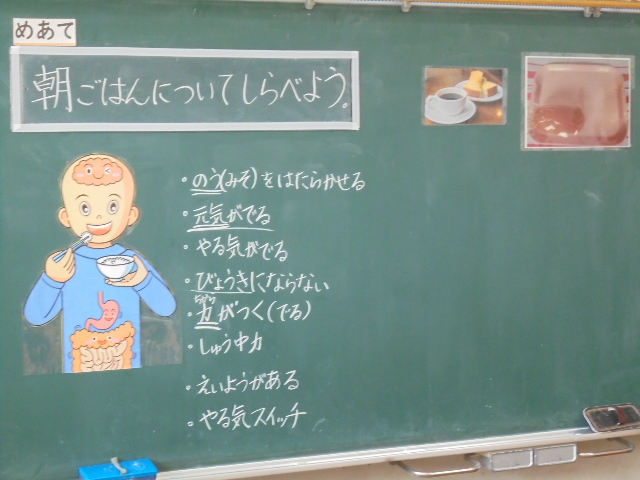 めあて
朝ごはんについてしらべよう。
・のう(みそ)をはたらかせる
・元気がでる
・やる気がでる
・びょうきにならない
ちから
・力がつく(でる)
・しゅう中力
・えいようがある
・やる気スイッチ